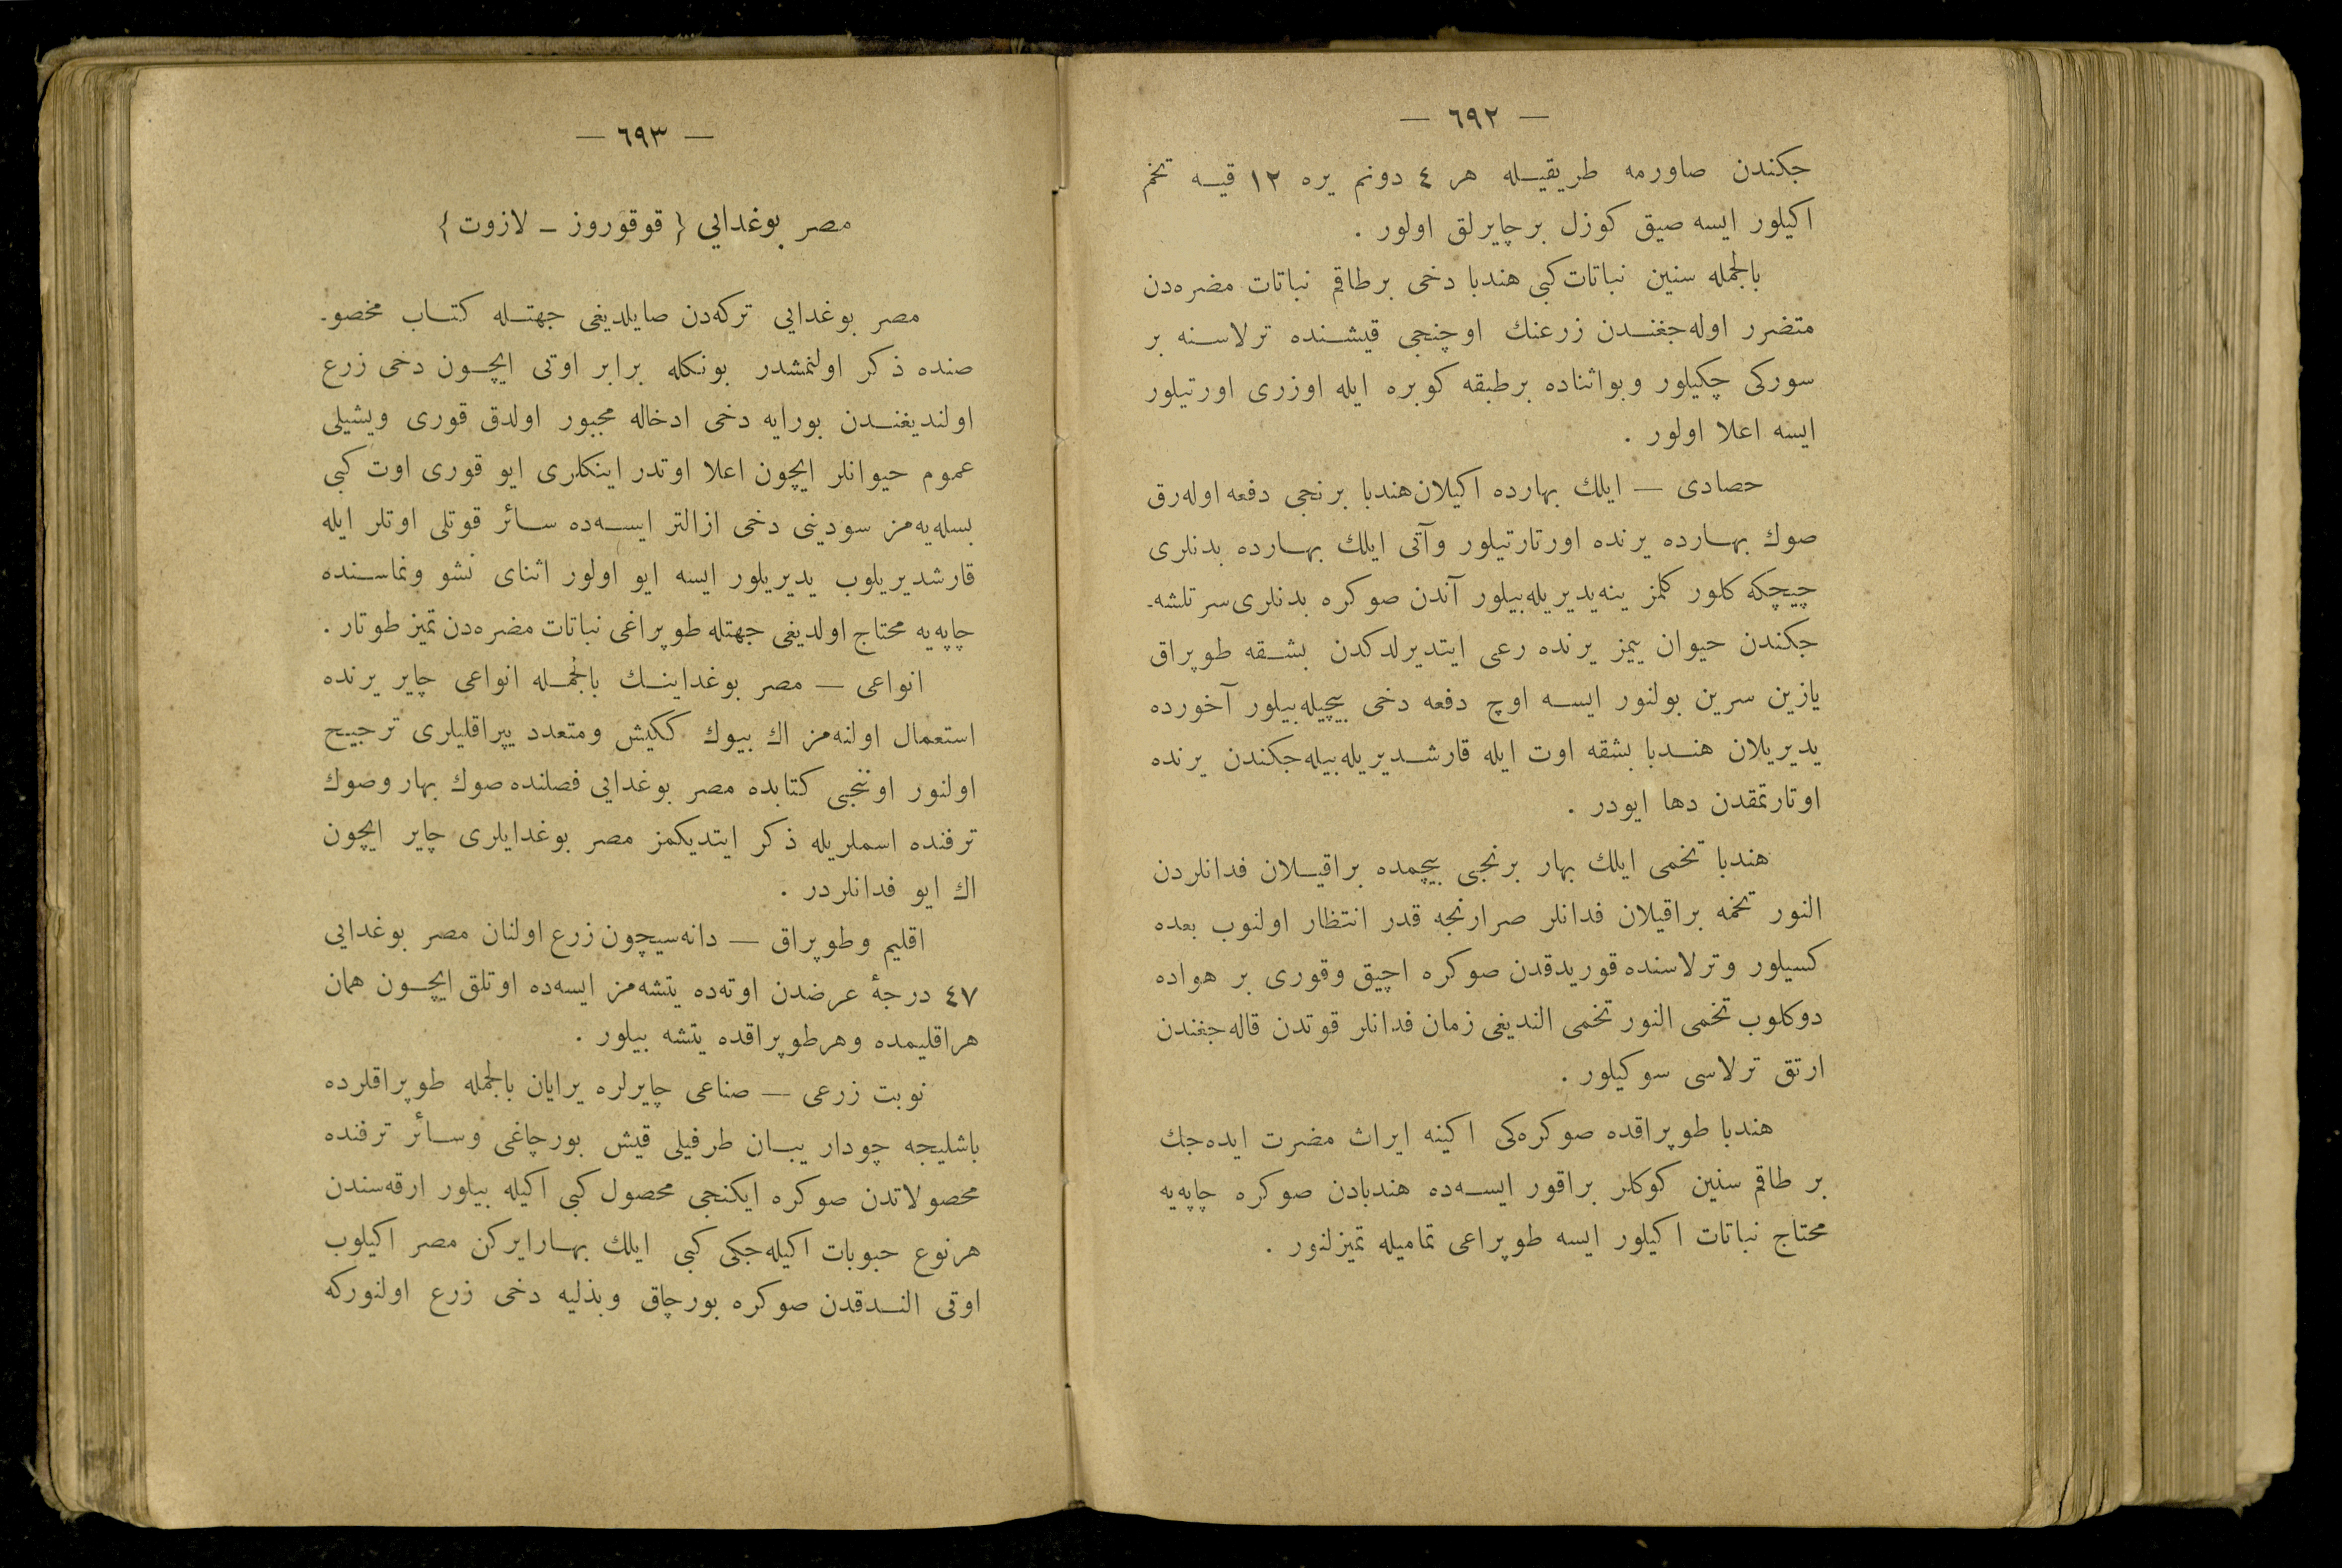 — ٦٩٢ —
جكندن صاورمه طريقيله هر ٤ دونم يره ١٢ قيه تخم
اكيلور ايسه صيق كوزل برچايرلق اولور .
بالجمله سنين نباتات كبى هندبا دخى برطاقم نباتات مضره‌دن
متضرر اوله‌جغندن زرعنك اوچنجى قيشنده ترلاسنه بر
سوركى چكيلور وبواثناده برطبقه كوبره ايله اوزرى اورتيلور
ايسه اعلا اولور .
حصادى — ايلك بهارده اكيلان هندبا برنجى دفعه اوله‌رق
صوك بهارده يرنده اورتارتيلور وآتى ايلك بهارده بدنلرى
چيچكه كلور كلمز ينه يديريله‌بيلور آندن صوكره بدنلرى سرتلشه‌ـ
جكندن حيوان ييمز يرنده رعى ايتديرلدكدن بشقه طوپراق
يازين سرين بولنور ايسه اوچ دفعه دخى بيچيله‌بيلور آخورده
يديريلان هندبا بشقه اوت ايله قارشديريله‌بيله‌جكندن يرنده
اوتارتمقدن دها ايودر .
هندبا تخمى ايلك بهار برنجى بيچمده براقيلان فدانلردن
النور تخمه براقيلان فدانلر صرارنجه قدر انتظار اولنوب بعده
كسيلور وترلاسنده قوريدقدن صوكره اچيق وقورى بر هواده
دوكلوب تخمى النور تخمى النديغى زمان فدانلر قوتدن قاله‌جغندن
ارتق ترلاسى سوكيلور .
هندبا طوپراقده صوكره‌كى اكينه ايراث مضرت ايده‌جك
بر طاقم سنين كوكلر براقور ايسه‌ده هندبادن صوكره چاپه‌يه
محتاج نباتات اكيلور ايسه طوپراعى تماميله تميزلنور .
— ٦٩٣ —
مصر بوغدايى { قوقوروز ـ لازوت }
مصر بوغدايى تركه‌دن صايلديغى جهتله كتاب مخصوـ
صنده ذكر اولنمشدر بونكله برابر اوتى ايچون دخى زرع
اولنديغندن بورايه دخى ادخاله مجبور اولدق قورى ويشيلى
عموم حيوانلر ايچون اعلا اوتدر اينكلرى ايو قورى اوت كبى
بسله‌يه‌مز سودينى دخى ازالتر ايسه‌ده سائر قوتلى اوتلر ايله
قارشديريلوب يديريلور ايسه ايو اولور اثناى نشو ونماسنده
چاپه‌يه محتاج اولديغى جهتله طوپراغى نباتات مضره‌دن تميز طوتار .
انواعى — مصر بوغداينك بالجمله انواعى چاير يرنده
استعمال اولنه‌مز اك بيوك ككيش ومتعدد يپراقليلرى ترجيح
اولنور اوننجى كتابده مصر بوغدايى فصلنده صوك بهار وصوك
ترفنده اسملريله ذكر ايتديكمز مصر بوغدايلرى چاير ايچون
اك ايو فدانلردر .
اقليم وطوپراق — دانه‌سيچون زرع اولنان مصر بوغدايى
٤٧ درجهٔ عرضدن اوته‌ده يتشه‌مز ايسه‌ده اوتلق ايچون همان
هراقليمده وهرطوپراقده يتشه بيلور .
نوبت زرعى — صناعى چايرلره يرايان بالجمله طوپراقلرده
باشليجه چودار يبان طرفيلى قيش بورچاغى وسائر ترفنده
محصولاتدن صوكره ايكنجى محصول كبى اكيله بيلور ارقه‌سندن
هرنوع حبوبات اكيله‌جكى كبى ايلك بهارايركن مصر اكيلوب
اوتى الندقدن صوكره بورچاق وبذليه دخى زرع اولنوركه